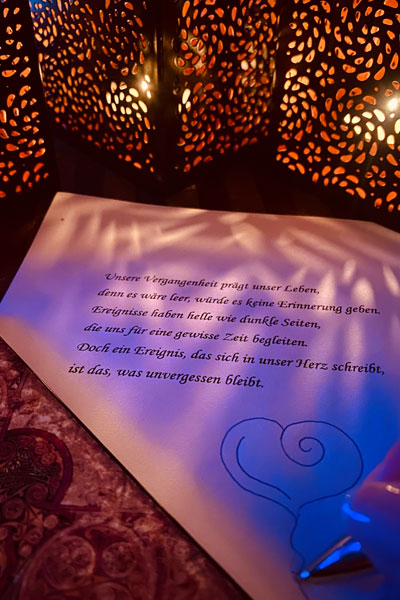 Unsere Vergangenheit prägt unser Leben,
denn es wäre leer, würde es keine Erinnerung geben.
Ereignisse haben helle wie dunkle Seiten,
die uns für eine gewisse Zeit begleiten.
Doch ein Ereignis, das sich in unser Herz schreibt,
ist das, was unvergessen bleibt.